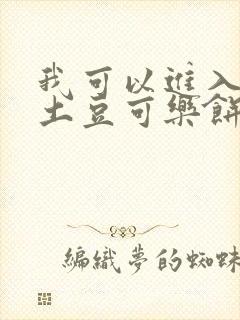 我可以進入
土豆可樂餅
編織夢的蜘蛛